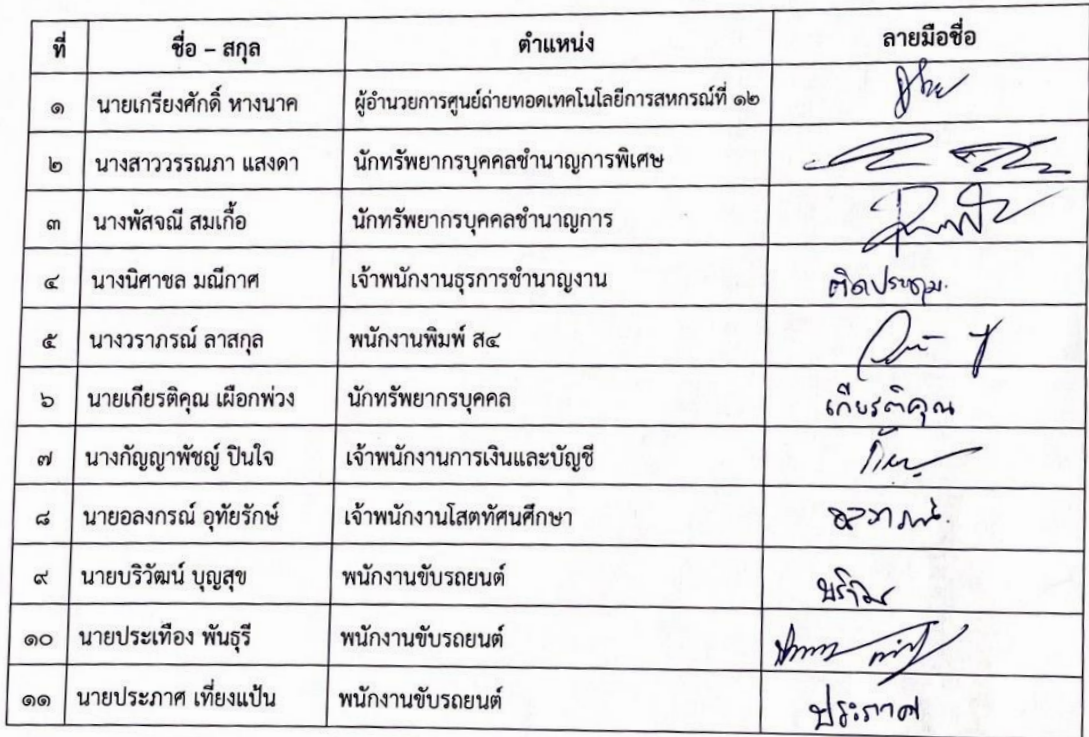 ที่ ชื่อ – สกุล ตำแหน่ง ลายมือชื่อ
๑ นายเกรียงศักดิ์ หางนาค ผู้อำนวยการศูนย์ถ่ายทอดเทคโนโลยีการสหกรณ์ที่ ๑๒
๒ นางสาววรรณภา แสงดา นักทรัพยากรบุคคลชำนาญการพิเศษ
๓ นางพัสจณี สมเกื้อ นักทรัพยากรบุคคลชำนาญการ
๔ นางนิศาชล มณีกาศ เจ้าพนักงานธุรการชำนาญงาน ติดประชุม
๕ นางวราภรณ์ ลาสกุล พนักงานพิมพ์ ส๔
๖ นายเกียรติคุณ เผือกพ่วง นักทรัพยากรบุคคล เกียรติคุณ
๗ นางกัญญาพัชญ์ ปินใจ เจ้าพนักงานการเงินและบัญชี
๘ นายอลงกรณ์ อุทัยรักษ์ เจ้าพนักงานโสตทัศนศึกษา
๙ นายบริวัฒน์ บุญสุข พนักงานขับรถยนต์
๑๐ นายประเทือง พันธุรี พนักงานขับรถยนต์
๑๑ นายประภาศ เที่ยงแป้น พนักงานขับรถยนต์ ประภาศ